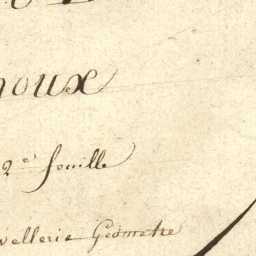 noux
2e fouille
vellerie Géometre